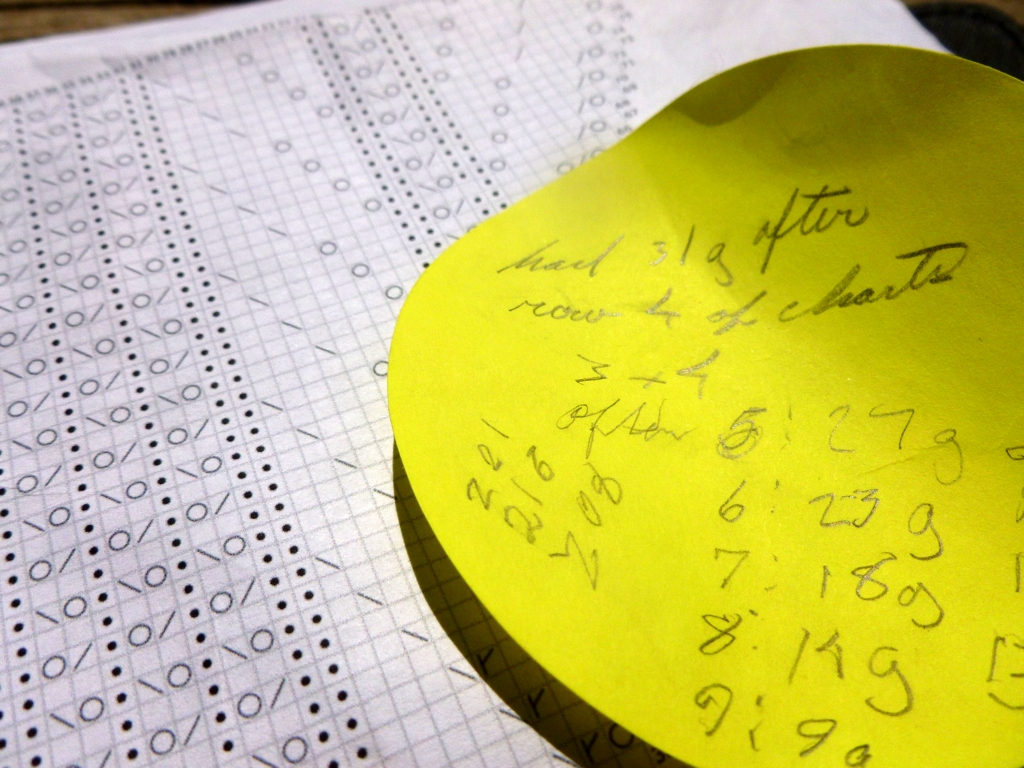 had 31g after
row 4 of charts
3 + 4
after 5: 27g
6: 23g
7: 18g
8: 14g
9: 9g
221
216
208